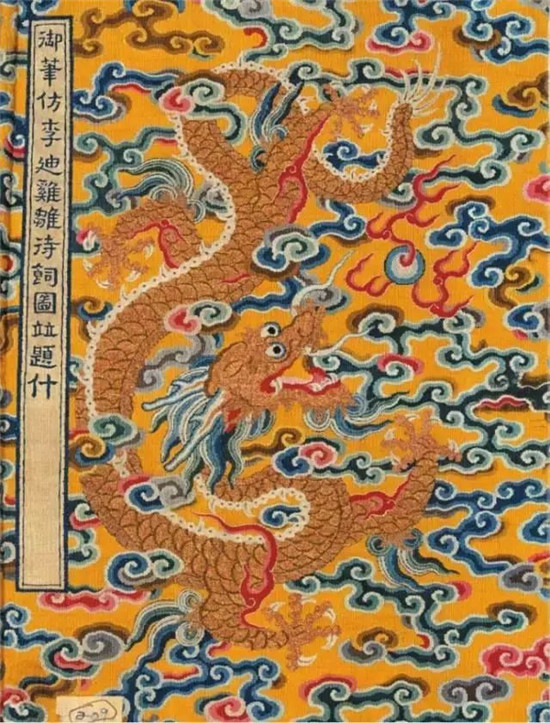 御筆仿李迪雞雛待飼圖並題什
a-29